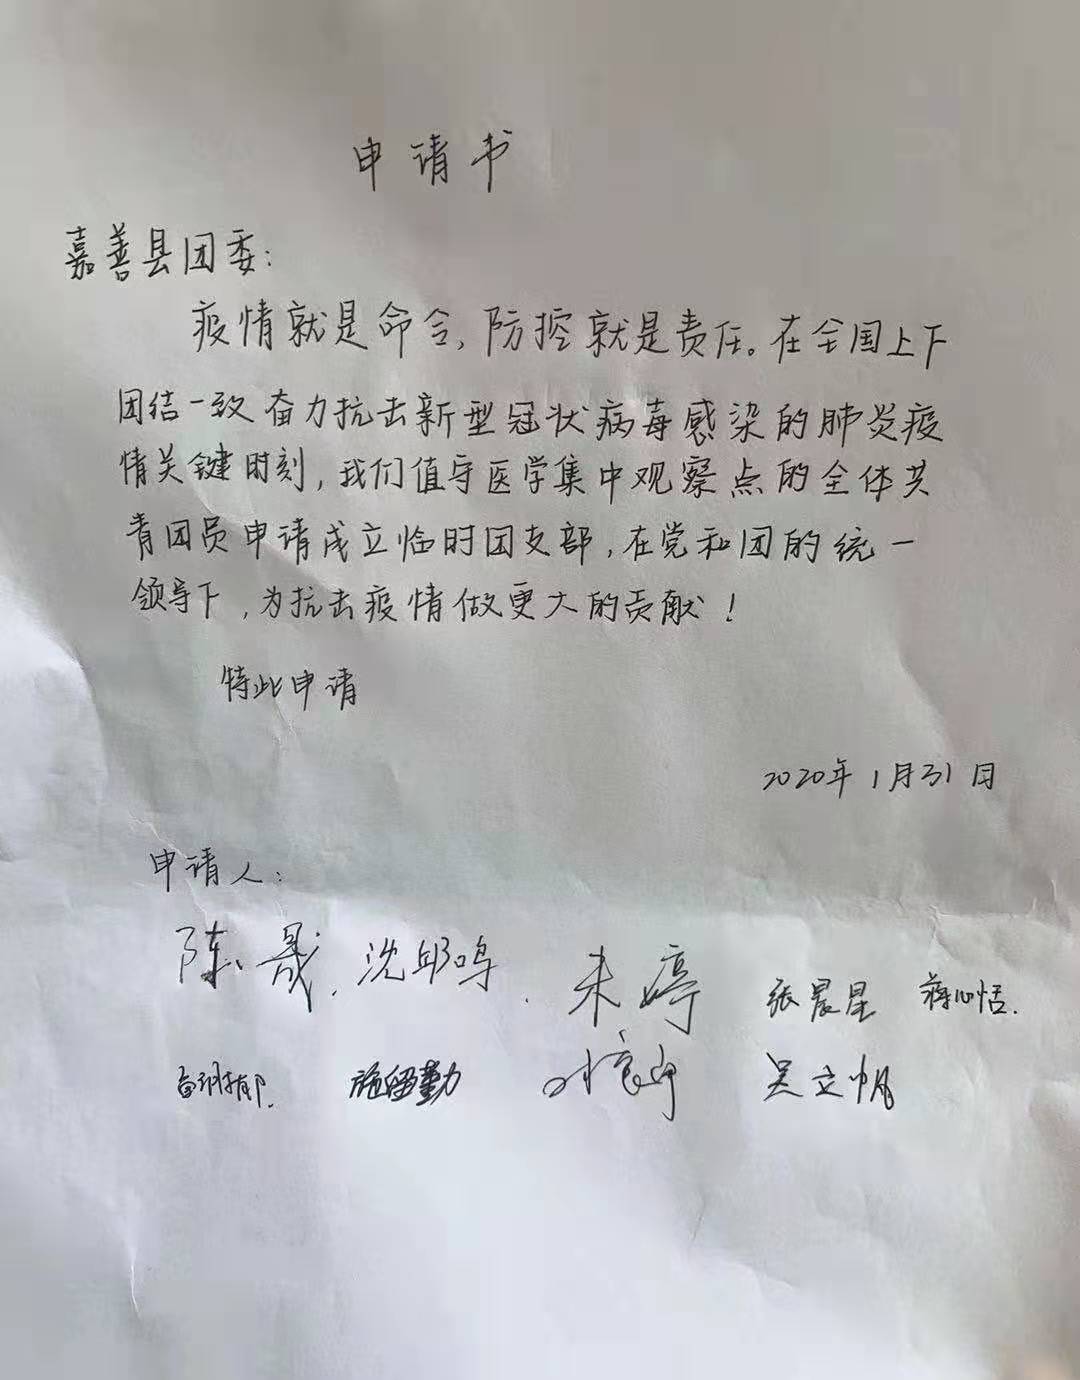 申请书
嘉善县团委：
疫情就是命令，防控就是责任。在全国上下
团结一致奋力抗击新型冠状病毒感染的肺炎疫
情关键时刻，我们值守医学集中观察点的全体共
青团员申请成立临时团支部，在党和团的统一
领导下，为抗击疫情做更大的贡献！
特此申请
2020年1月31日
申请人：
陈晟．沈邱鸣．朱婷 张晨星 蒋心恬．
施留勤 吴立帆